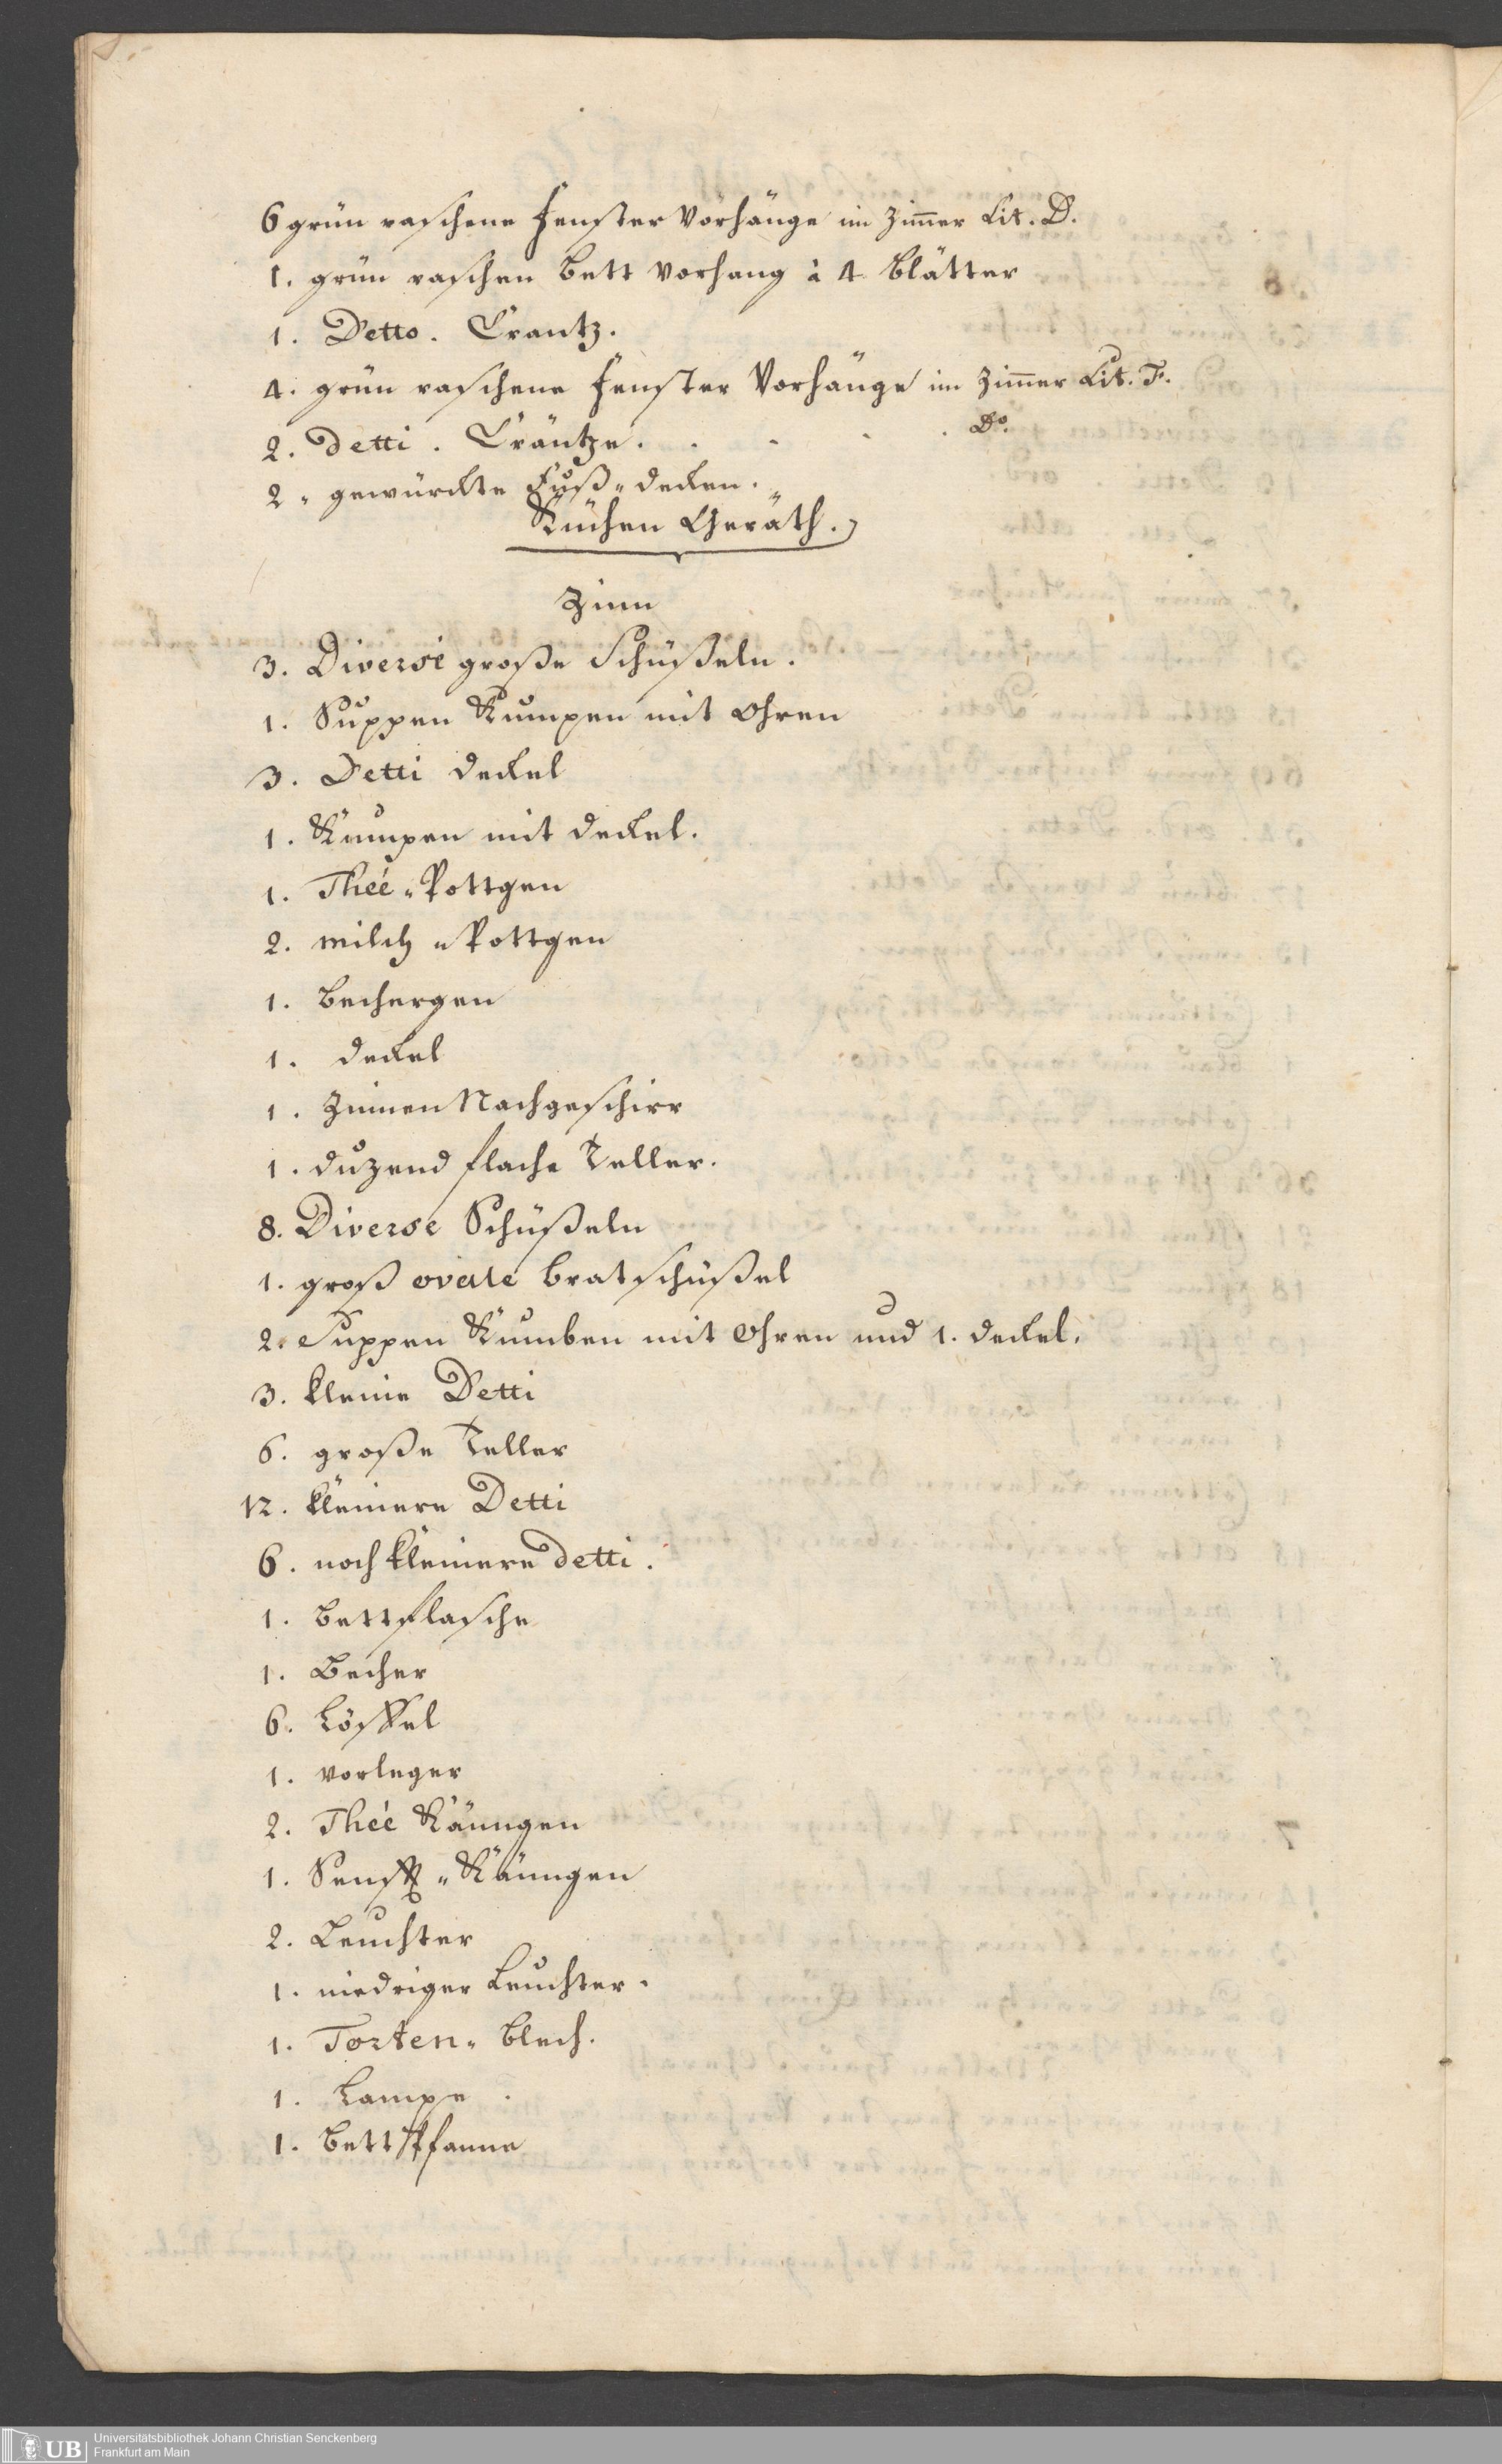 6 grün raschene Fenster Vorhänge im Zim̅er Lit. D.
1. grün raschen Bett Vorhang à 4 Blätter
1. Detto. Crantz.
4. grün raschene Fenster Vorhänge im Zim̅er Lit. F.
2. detti. Cräntze. . . . . Do.
2 „ gewürckte Fuß„decken.
Küchen Geräth.
Zinn
3. Diverse große Schüßeln.
1. Suppen Kumpen mit Ohren
3. Detti deckel
1. Kumpen mit deckel.
1. Theé„Pottgen
2. milch„Pottgen
1. Bechergen
1. deckel
1. Zinnen Nachgeschirr
1. duzend flache Teller.
8. Diverse Schüßeln
1. groß ovale bratschüßel
2. Suppen Kumben mit Ohren und 1. deckel.
3. kleine Detti
6. große Teller
12. kleinere Detti
6. noch kleinere detti.
1. bettflasche
1. Becher
6. Löffel
1. vorleger
2. Theé Känngen
1. Senff„Känngen
2. Leuchter
1. niedriger Leuchter.
1. Torten„blech.
1. Lampe.
1. bett Pfanne
UB
Universitätsbibliothek Johann Christian Senckenberg
Frankfurt am Main